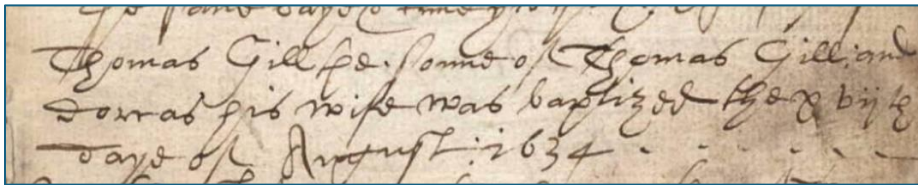 the same daye
Thomas Gill the sonne of Thomas Gill and
dorcas his wife was baptized the xvijth
daye of August : 1634